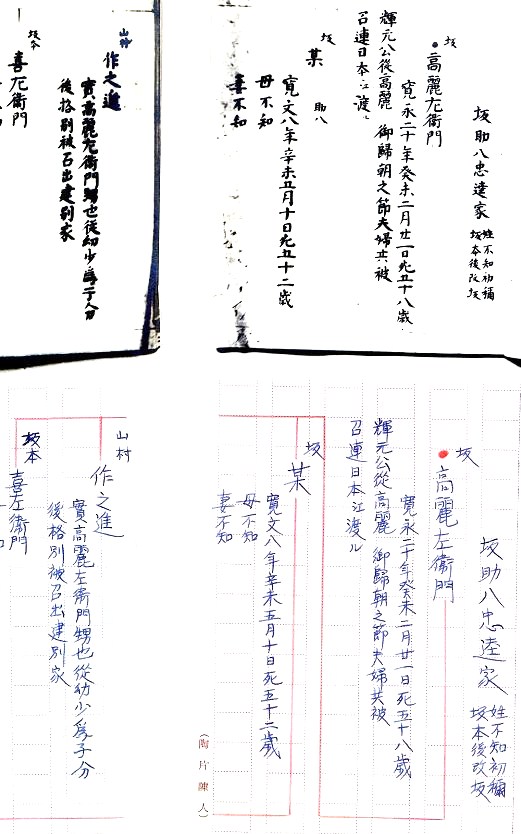 坂助八忠逵家
姓不知初稱
坂本後改坂
坂
高麗左衛門
寛永二十年癸未二月廿一日死五十八歳
輝元公從高麗 御歸朝之節夫婦共被
召連日本江渡ル
坂
某 助八
寛文八年辛未五月十日死五十二歳
母不知
妻不知
山村
作之進
實高麗左衛門甥也從幼少為子分
後格別被召出建別家
坂本
喜左衛門
坂助八忠逵家
姓不知初稱
坂本後改坂
坂
高麗左衛門
寛永二十年癸未二月廿一日死五十八歳
輝元公從高麗 御歸朝之節夫婦共被
召連日本江渡ル
坂
某
寛文八年辛未五月十日死五十二歳
母不知
妻不知
(陶片陳人)
山村
作之進
實高麗左衛門甥也從幼少爲子分
後格別被召出建別家
坂本
喜左衛門